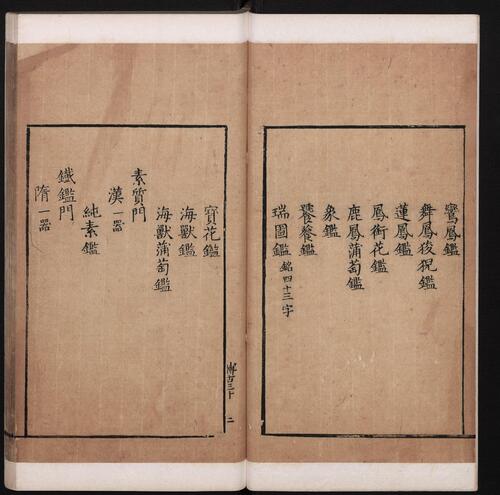 鸞鳳鑑
舞鳳狻猊鑑
蓮鳳鑑
鳳銜花鑑
鹿鳳蒲萄鑑
象鑑
饕餮鑑
瑞圖鑑 銘四十三字
寶花鑑
海獸鑑
海獸蒲萄鑑
素質門
漢 一器
純素鑑
鐵鑑門
隋 一器
二